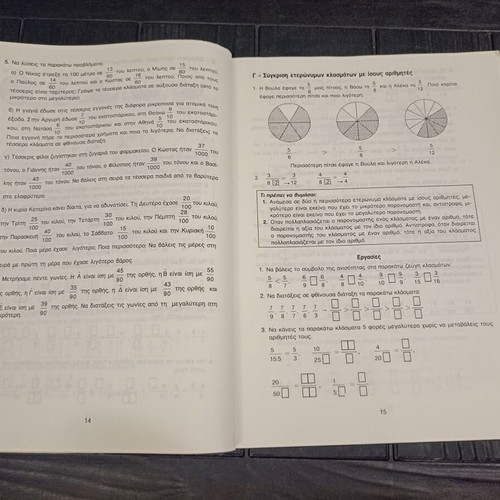 5. Να λύσεις τα παρακάτω προβλήματα:
α) Ο Νίκος έτρεξε τα 100 μέτρα σε 13/60 του λεπτού, ο Μίμης σε 15/60 του λεπτού,
ο Παύλος σε 14/60 του λεπτού και ο Κώστας σε 16/60 του λεπτού. Ποιος από τους
τέσσερις είναι ταχύτερος; Γράψε τα τέσσερα κλάσματα σε αύξουσα διάταξη (από το
μικρότερο στο μεγαλύτερο).
β) Η γιαγιά έδωσε στις τέσσερις εγγονές της διάφορα μικροποσά για ατομικά τους
έξοδα. Στην Αργυρή έδωσε του εκατοστάρικου, στη Θεανώ του εκατοστάρι-
κου, στη Νατάσα του εκατοστάρικου και στην Αθηνά του εκατοστάρικου.
Ποια εγγονή πήρε τα περισσότερα χρήματα και ποια τα λιγότερα; Να διατάξεις τα
τέσσερα κλάσματα σε φθίνουσα διάταξη.
γ) Τέσσερις φίλοι ζυγίστηκαν στη ζυγαριά του φαρμακείου. Ο Κώστας ήταν 37/1000 του
τόνου, ο Γιάννης ήταν 40/1000 του τόνου, ο Φιλώτας ήταν 39/1000 του τόνου και ο Βασί-
λης ήταν 43/1000 του τόνου. Να βάλεις στη σειρά τα τέσσερα παιδιά από το βαρύτερο
στο ελαφρότερο.
δ) Η κυρία Κατερίνα κάνει δίαιτα, για να αδυνατίσει. Τη Δευτέρα έχασε 20/100 του κιλού,
την Τρίτη 25/100 του κιλού, την Τετάρτη 30/100 του κιλού, την Πέμπτη 28/100 του κιλού,
την Παρασκευή 40/100 του κιλού, το Σάββατο 15/100 του κιλού και την Κυριακή 10/100
του κιλού. Ποια μέρα έχασε λιγότερο; Ποια περισσότερο; Να βάλεις τις μέρες στη
σειρά με πρώτη τη μέρα που έχασε λιγότερο βάρος.
Μετρήσαμε πέντε γωνίες. Η Α είναι ίση με 45/90 της ορθής, η Β είναι ίση με 55/90
της ορθής, η Γ είναι ίση με 35/90 της ορθής, η Δ είναι ίση με 43/90 της ορθής και
Ε είναι ίση με 39/90 της ορθής. Να διατάξεις τις γωνίες από τη μεγαλύτερη στη
14
Γ - Σύγκριση ετερώνυμων κλασμάτων με ίσους αριθμητές
1. Η Βούλα έφαγε τα 5/6 μιας πίτσας, η Βάσω τα 5/8 και η Αλέκα τα 5/12. Ποιο κορίτσι
έφαγε περισσότερη πίτσα και ποιο λιγότερη;
5/6 > 5/8 > 5/12
Περισσότερη πίτσα έφαγε η Βούλα και λιγότερη η Αλέκα.
Τι πρέπει να θυμάμαι:
1. Ανάμεσα σε δύο ή περισσότερα ετερώνυμα κλάσματα με ίσους αριθμητές, με-
γαλύτερο είναι εκείνο που έχει το μικρότερο παρονομαστή και, αντίστροφα, μι-
κρότερο είναι εκείνο που έχει το μεγαλύτερο παρονομαστή.
2. Όταν πολλαπλασιάζεται ο παρονομαστής ενός κλάσματος με έναν αριθμό, τότε
διαιρείται η αξία του κλάσματος με τον ίδιο αριθμό. Αντίστροφα, όταν διαιρείται
ο παρονομαστής του κλάσματος με έναν αριθμό, τότε η αξία του κλάσματος
πολλαπλασιάζεται με τον ίδιο αριθμό.
Εργασίες
1. Να βάλεις το σύμβολο της ανισότητας στα παρακάτω ζεύγη κλασμάτων:
2. Να διατάξεις σε φθίνουσα διάταξη τα παρακάτω κλάσματα:
3. Να κάνεις τα παρακάτω κλάσματα 5 φορές μεγαλύτερα χωρίς να μεταβάλεις τους
αριθμητές τους:
15